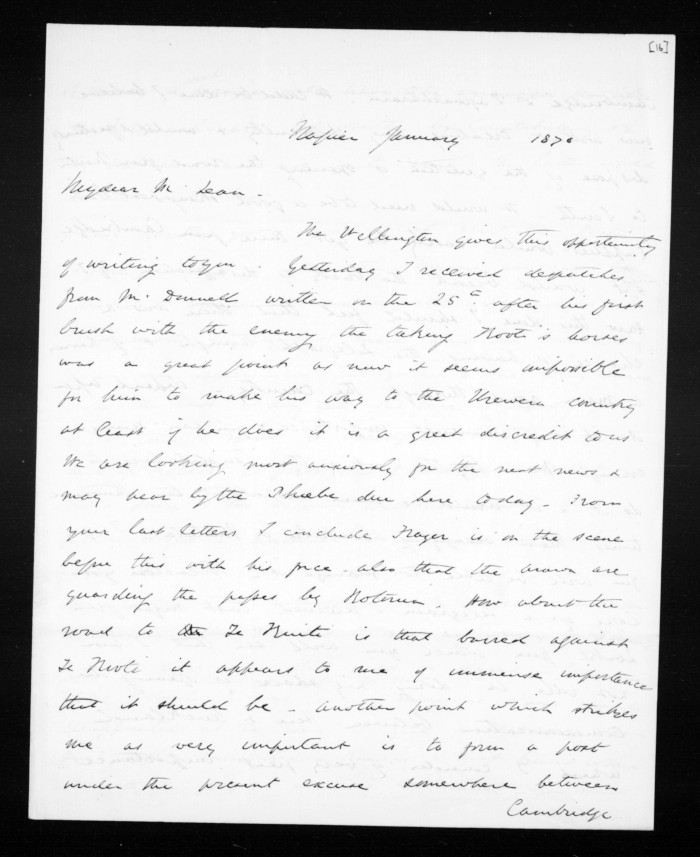 [16]
Napier January 1870
My dear Mr. Lean -
The Wellington gives this opportunity
of writing to you. Yesterday I received despatches
from Mc. Donnell written on the 25th after his first
brush with the enemy, the taking Kooti's horses
was a great point as now it seems impossible
for him to make his way to the Urewera country
at least if he does it is a great discredit to us
We are looking most anxiously for the next news &
may hear by the Phoebe due here to day - From
your last letters I conclude Frazer is on the scene
before this with his force - also that the arawa are
guarding the passes by Rotorua. How about the
road to Te Kuiti is that barred against
Te Kooti it appears to me of immense importance
that it should be - another point which strikes
me as very important is to form a post
under the present excuse somewhere between
Cambridge